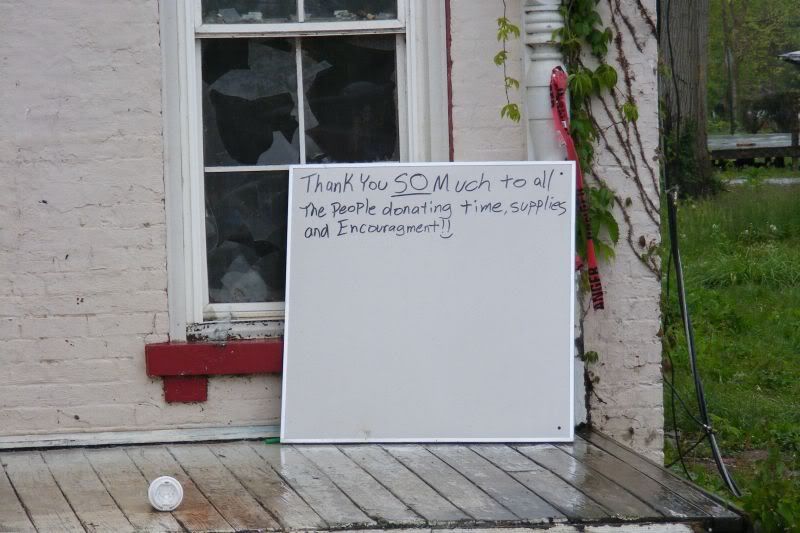 Thank You SO Much to all
The People donating time, supplies
and Encouragment!!
ANGER